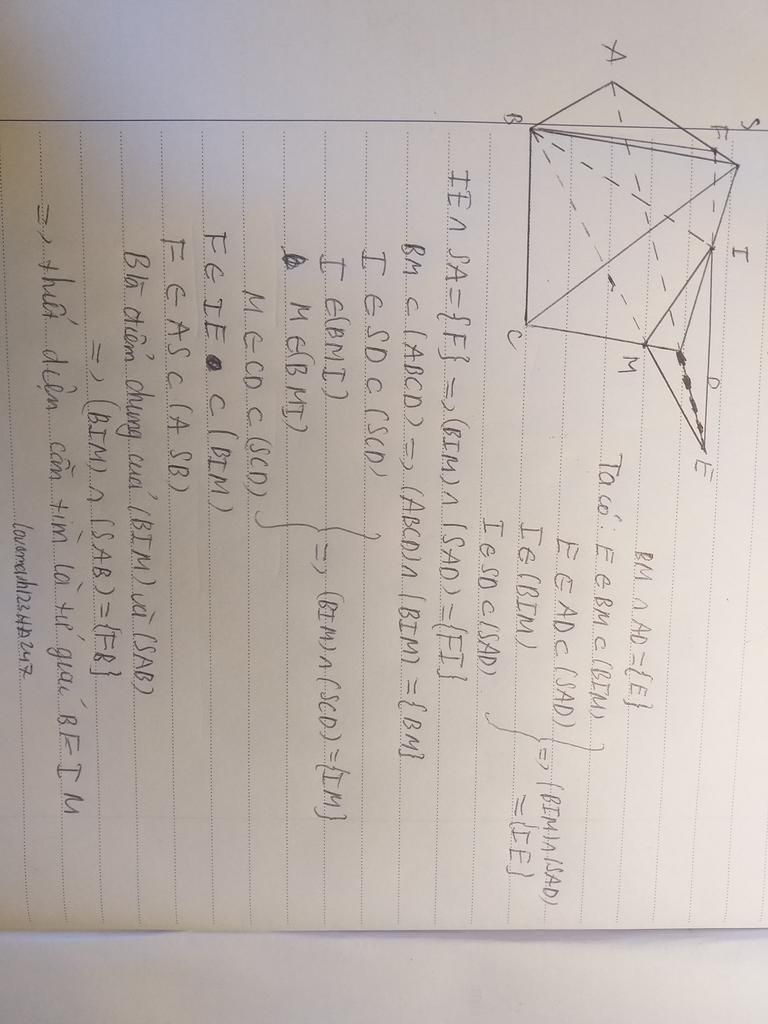 A
B
S
F
I
C
M
D
E
BM ∩ AD = {E}
Ta có: E ∈ BM ⊂ (BIM)
E ∈ AD ⊂ (SAD)
I ∈ (BIM)
I ∈ SD ⊂ (SAD)
} => (BIM) ∩ (SAD)
= {IE}
IE ∩ SA = {F} => (BIM) ∩ (SAD) = {FI}
BM ⊂ (ABCD) => (ABCD) ∩ (BIM) = {BM}
I ∈ SD ⊂ (SCD)
I ∈ (BMI)
M ∈ (BMI)
M ∈ CD ⊂ (SCD)
} => (BIM) ∩ (SCD) = {IM}
F ∈ IE ⊂ (BIM)
F ∈ AS ⊂ (ASB)
B là điểm chung của (BIM) và (SAB)
=> (BIM) ∩ (SAB) = {FB}
=> thiết diện cần tìm là tứ giác BFIM